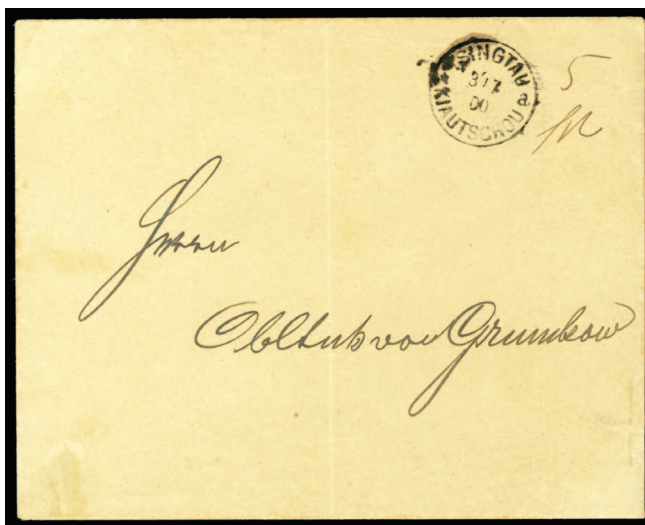 TSINGTAU
3/7
00
a
KIAUTSCHOU
5
Herrn
Obltnt von Grumbkow